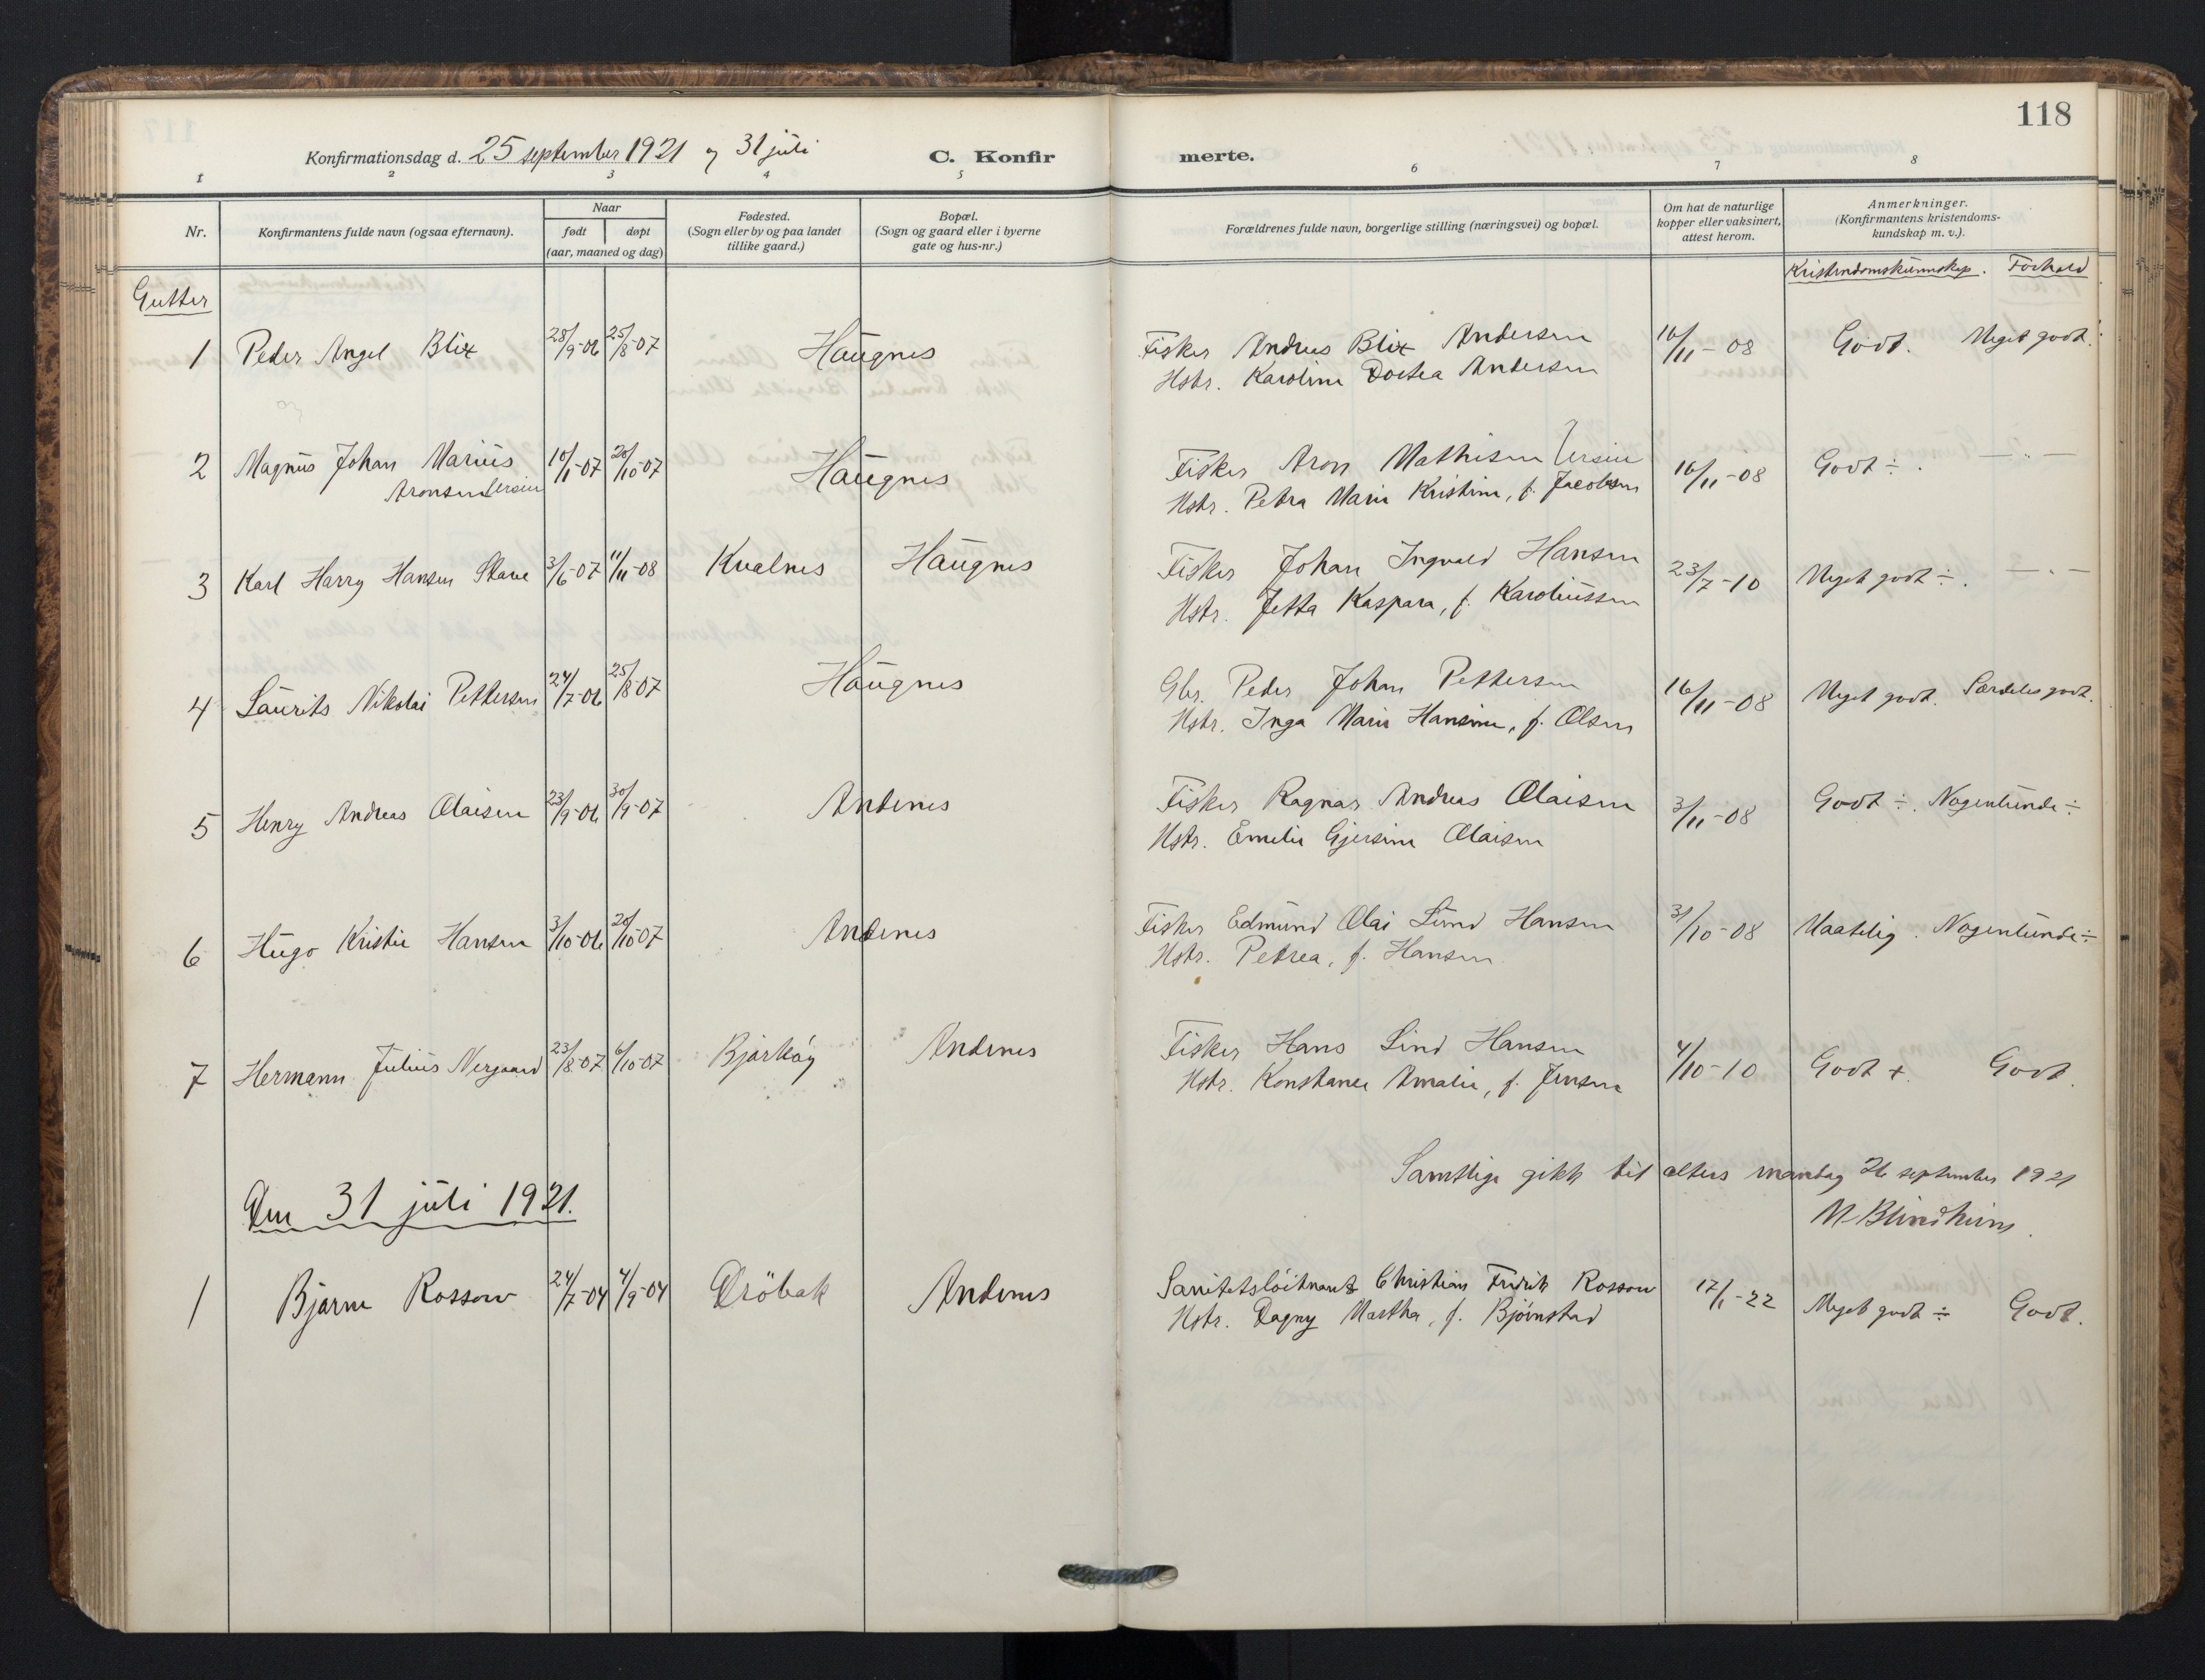 118
Konfirmationsdag d. 25 september 1921 og 31 juli
C. Konfirmerte.
1 2 3 4 5 6 7 8
Nr.
Konfirmantens fulde navn (ogsaa efternavn).
Naar
født
døpt
(aar, maaned og dag)
Fødested.
(Sogn eller by og paa landet
tillike gaard.)
Bopæl.
(Sogn og gaard eller i byerne
gate og hus-nr.)
Forældrenes fulde navn, borgerlige stilling (næringsvei) og bopæl.
Om hat de naturlige
kopper eller vaksinert,
attest herom.
Anmerkninger.
(Konfirmantens kristendoms-
kundskap m. v.).
Kristendomskunnskap. Forhold
Gutter
1 Peder Angel Blix 28/9-06 25/8-07 Haugnes Fisker Andreas Blix Andersen 16/11-08 Godt. Meget godt.
Hstr. Karoline Dortea Andersen
2 Magnus Johan Marius 10/1-07 20/10-07 Haugnes Fisker Aron Mathisen 16/11-08 Godt ÷. — " —
Aronsen
Hstr. Petra Marie Kristine, f. Jacobsen
3 Karl Harry Hansen Skave 3/6-07 11/11-08 Kvalnes Haugnes Fisker Johan Ingvald Hansen 23/7-10 Meget godt ÷. — " —
Hstr. Jetta Kaspara, f. Karoliussen
4 Laurits Nikolai Pettersen 24/7-06 25/8-07 Haugnes Gbr. Peder Johan Pettersen 16/11-08 Meget godt. Særdeles godt.
Hstr. Inga Marie Hansine, f. Olsen
5 Henry Andreas Olaisen 23/9-06 30/9-07 Andenes Fisker Ragnar Andreas Olaisen 3/11-08 Godt ÷. Nogenlunde ÷
Hstr. Emelie Gjersine Olaisen
6 Hugo Kristie Hansen 3/10-06 20/10-07 Andenes Fisker Edmund Olai Lund Hansen 31/10-08 Maatelig. Nogenlunde ÷
Hstr. Petrea, f. Hansen
7 Hermann Julius Nergaard 23/8-07 6/10-07 Bjarköy Andenes Fisker Hans Lind Hansen 4/10-10 Godt +. Godt.
Hstr. Konstance Amalie, f. Jensen
Samtlige gikk til alters mandag 26 september 1921
M Blindheim.
Den 31 juli 1921.
1 Bjarne Rossow 24/7-04 4/9-04 Dröbak Andenes Sanitetslöitnant Christian Fredrik Rossow 17/1-22 Meget godt ÷ Godt.
Hstr. Dagny Martha, f. Björnstad